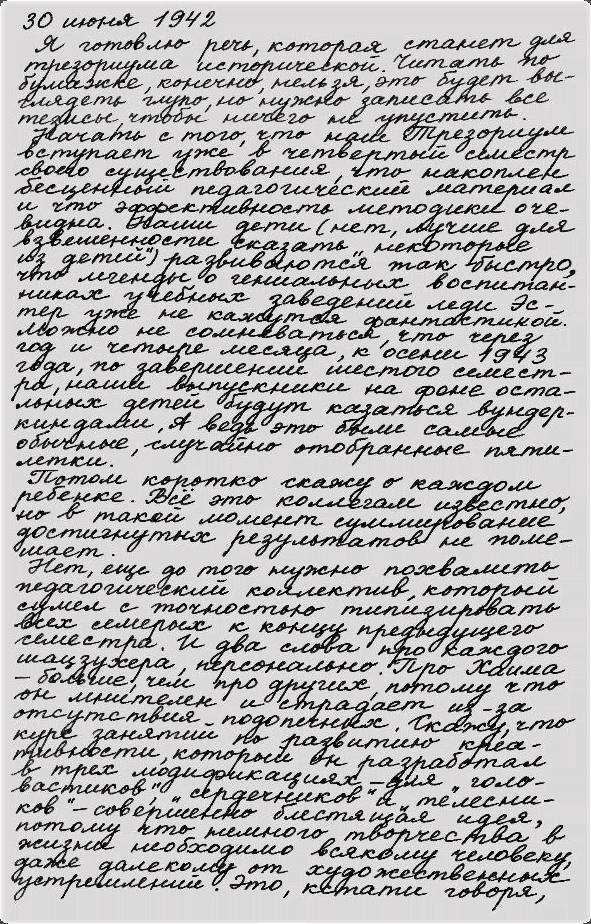 30 июня 1942
Я готовлю речь, которая станет для
трезориума исторической. Читать по
бумажке, конечно, нельзя, это будет вы-
глядеть глупо, но нужно записать все
тезисы, чтобы ничего не упустить.
Начать с того, что наш Трезориум
вступает уже в четвертый семестр
своего существования, что накоплен
бесценный педагогический материал
и что эффективность методики оче-
видна. Наши дети (нет, лучше для
взвешенности сказать „некоторые
из детей") развиваются так быстро,
что легенды о гениальных воспитан-
никах учебных заведений леди Эс-
тер уже не кажутся фантастикой.
Можно не сомневаться, что через
год и четыре месяца, к осени 1943
года, по завершении шестого семест-
ра, наши выпускники на фоне оста-
льных детей будут казаться вундер-
киндами. А ведь это были самые
обычные, случайно отобранные пяти-
летки.
Потом коротко скажу о каждом
ребенке. Всё это коллегам известно,
но в такой момент суммирование
достигнутых результатов не поме-
шает.
Нет, еще до того нужно похвалить
педагогический коллектив, который
сумел с точностью типизировать
всех семерых к концу предыдущего
семестра. И два слова про каждого
шацзухера, персонально. Про Хаима
– больше, чем про других, потому что
он мнителен и страдает из-за
отсутствия подопечных. Скажу, что
курс занятий по развитию креа-
тивности, который он разработал
в трех модификациях – для „голо-
вастиков", „сердечников" и „телесни-
ков" – совершенно блестящая идея,
потому что немного творчества в
жизни необходимо всякому человеку,
даже далекому от художественных
устремлений. Это, кстати говоря,